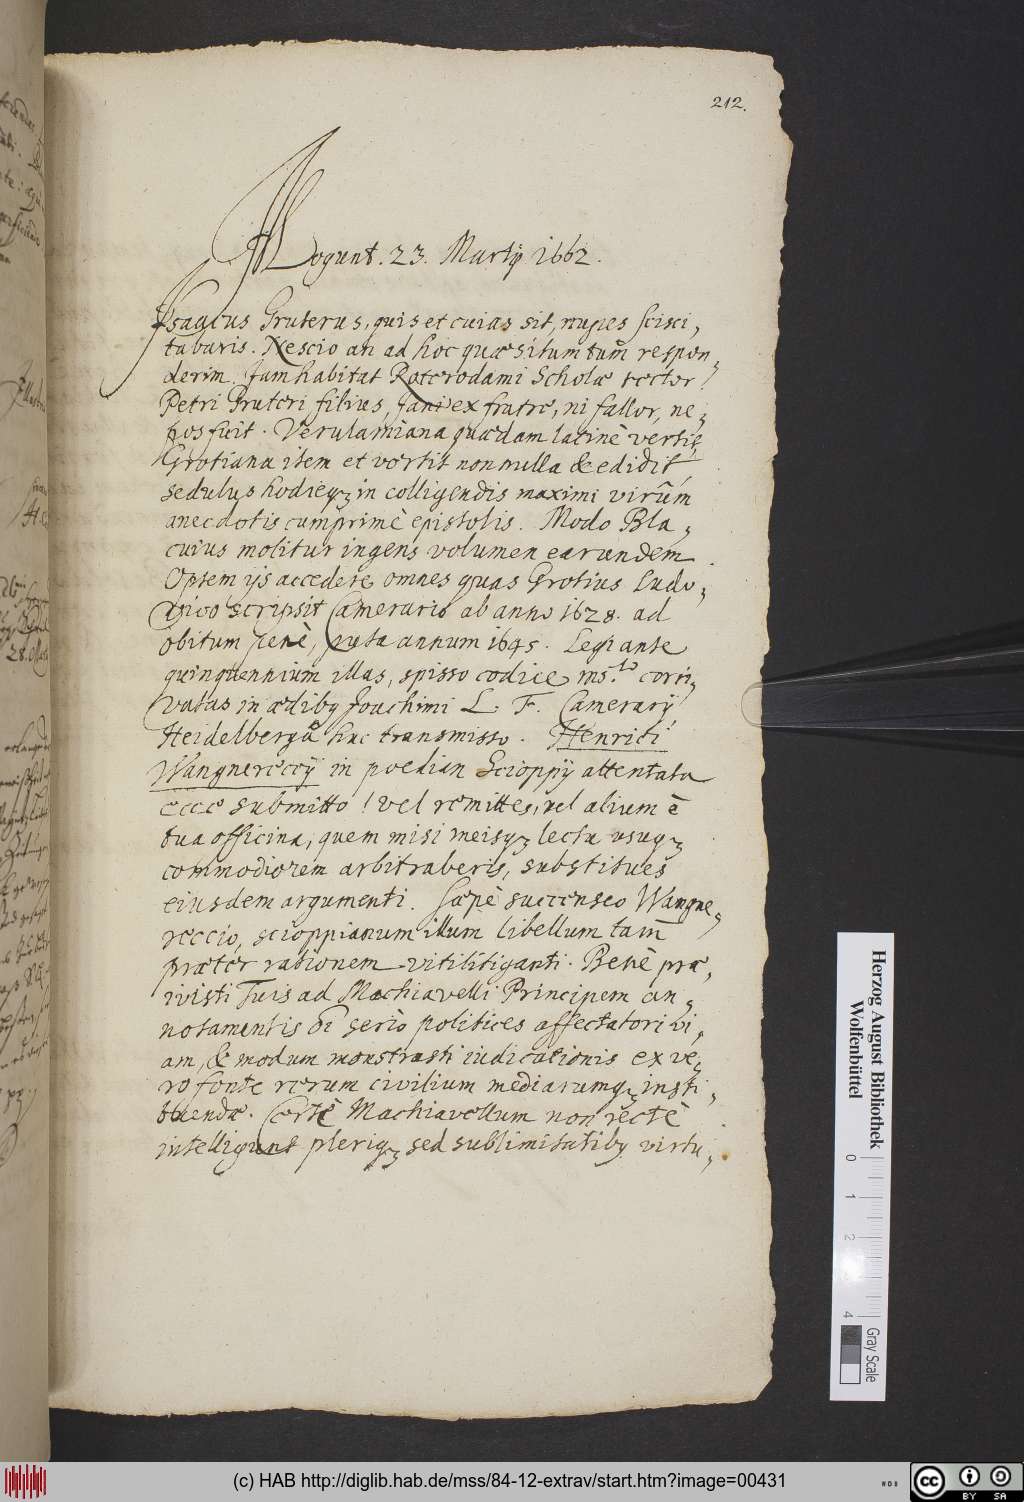 212.
Mogunt. 23. Martij 1662.
Isaacus Gruterus, quis et cuias sit, nuper sciscì,
tabaris. Nescio an ad hoc quæsitum tuũ respon,
derim. Jam habitat Roterodami Scholæ rector,
Petri Gruteri filius, Jani ex fratre, ni fallor, ne,
pos fuit. Verulamiana quædam latinè vertit,
Grotiana item et vertit nonnulla & edidit,
sedulus hodieq; in colligendis maximi virũm
anecdotis cumprimè epistolis. Modo Bla,
cuius molitur ingens volumen earundem.
Optem ijs accedere omnes quas Grotius Ludo,
vico scripsit Camerario ab anno 1628. ad
obitum penè, puta annum 1645. Legi ante
quinquennium illas, spisso codice ms.to corri,
vatas in ædibq Joachimi L. F. Camerarij
Heidelbergâ huc transmisso. Henrici
Wangnereccij in pœdian Scioppij attentata
ecce submitto! vel remittes, vel alium è
tua officina, quem misi meisq; lectu usuq;
commodiorem arbitraberis, substitues
eiusdem argumenti. Sæpè succenseo Wangne,
reccio, scioppianum illum libellum tam̃
præter rationem vitilitiganti. Benè præ,
ivisti Tuis ad Machiavelli Principem an,
notamentis oĩ seriò politices affectatori vi,
am, & modum monstrasti iudicationis ex ve,
ro fonte rerum civilium mediarumq; insti,
tuendæ. Certè Machiavellum non rectè
intelligunt plerìq; sed sublimitatibq virtu,
Herzog August Bibliothek
Wolfenbüttel
0 1 2 4
Gray Scale
(c) HAB http://diglib.hab.de/mss/84-12-extrav/start.htm?image=00431
cc BY SA